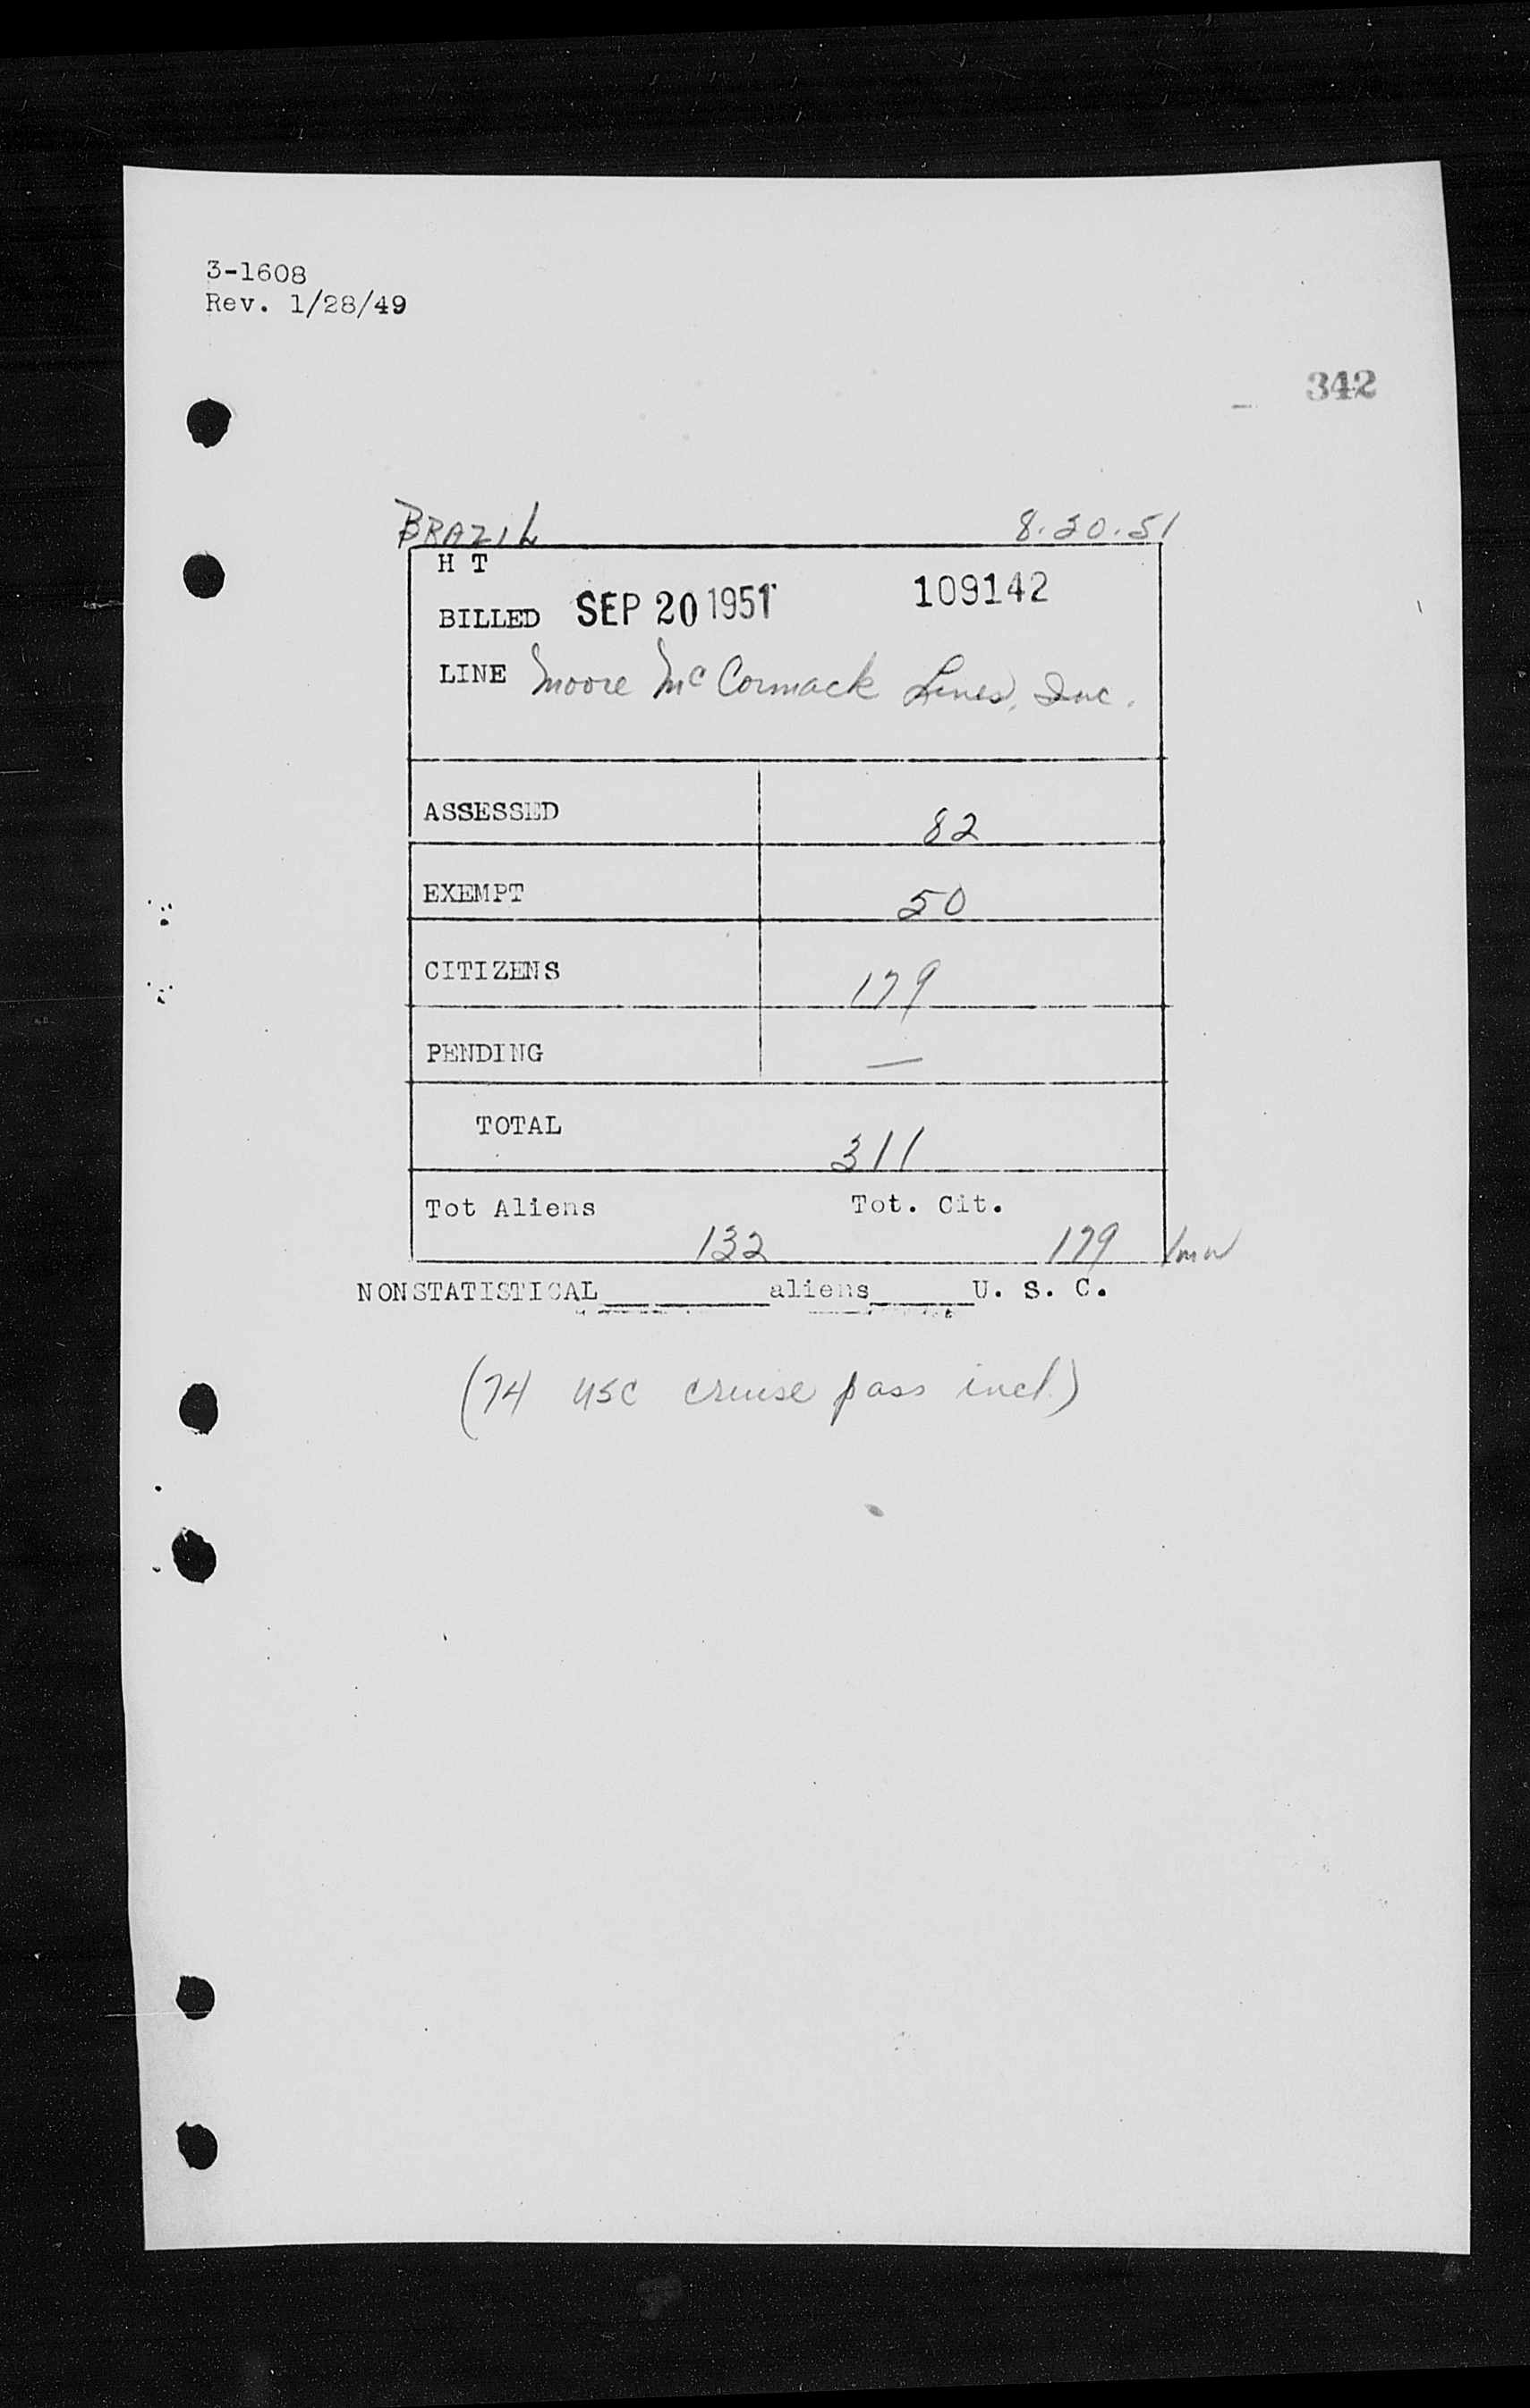 3-1608
Rev. 1/28/49
342
BRAZIL 8.20.51
H T
BILLED SEP 20 1951 109142
LINE Moore McCormack Lines, Inc.
ASSESSED 82
EXEMPT 50
CITIZENS 179
PENDING —
TOTAL 311
Tot Aliens Tot. Cit.
132 179
NONSTATISTICAL aliens U. S. C.
(74 USC cruise pass incl.)